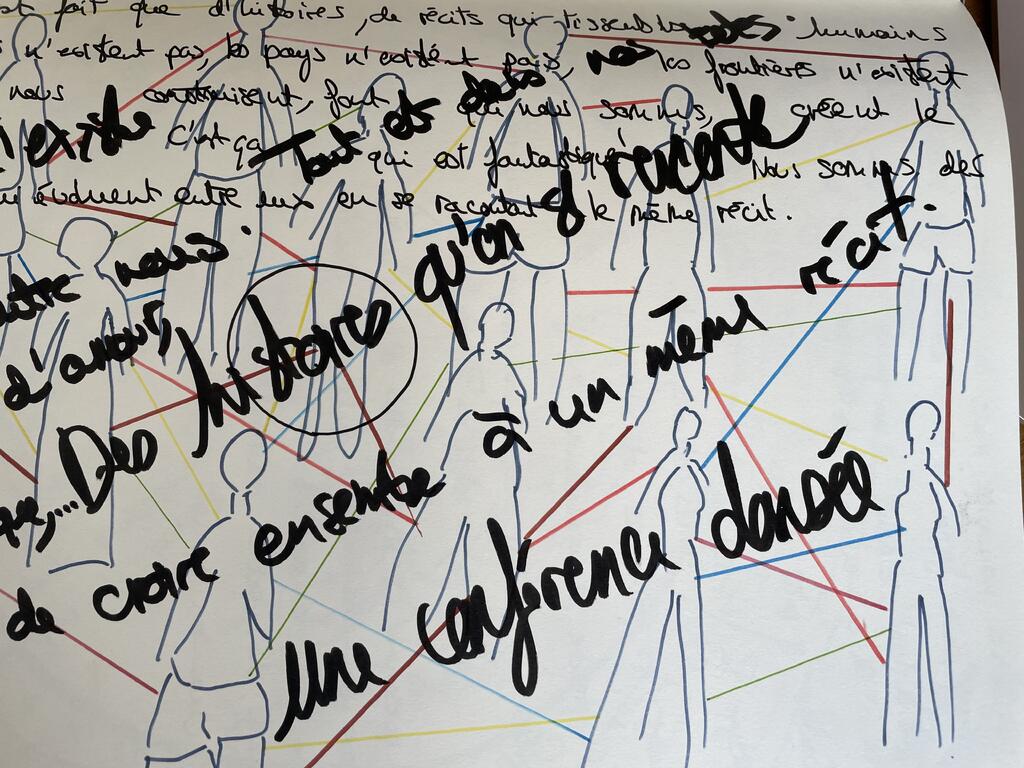 st fait que d'histoires, de récits qui humains
n'existent pas, les pays n'existent pas, les frontières n'existent
nous construisent, font qui nous sommes, créent le
existe C'est ça qui est fantastique Nous sommes des
évoluent entre eux en se racontant le même récit.
Tout est dans
entre nous.
d'amour,
Des histoires qu'on se raconte
de croire ensemble à un même récit.
Une conférence dansée